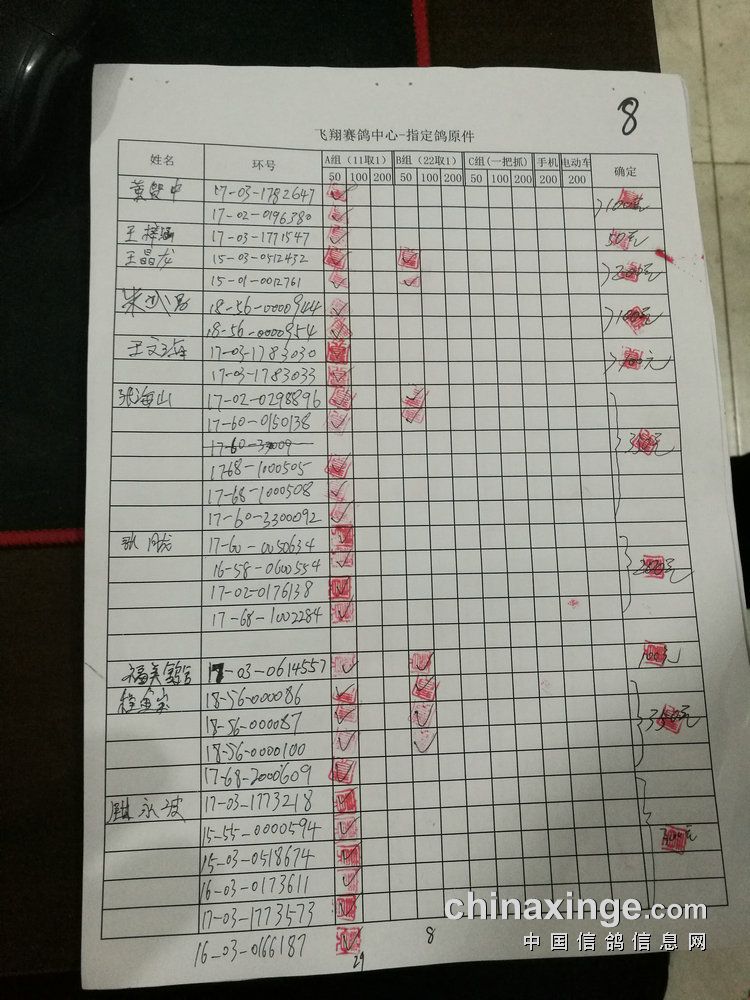 8
飞翔赛鸽中心-指定鸽原件
姓名 环号 A组（11取1） B组（22取1） C组(一把抓) 手机 电动车 确定
50 100 200 50 100 200 50 100 200 200 200
17-03-1782647 ✓
17-02-0196380 ✓
王梓涵 17-03-1771547 ✓ 50元
王晶龙 15-03-0512432 ✓ ✓
15-01-0012761 ✓ ✓
18-56-0000944 ✓
18-56-0000954 ✓
17-03-1783030 ✓
17-03-1783033 ✓
张海山 17-02-0298896 ✓ ✓
17-60-0150138 ✓ ✓
17-60-33009
17-68-1000505 ✓
17-68-1000508 ✓
17-60-3300092 ✓
17-60-0050634 ✓
16-58-0600554 ✓
17-02-0176138 ✓
17-68-1002284 ✓
17-03-0614557 ✓ ✓
18-56-000086 ✓ ✓
18-56-000087 ✓ ✓
18-56-0000100 ✓ ✓
17-68-2000609 ✓
永波 17-03-1773218 ✓
15-55-0000594 ✓
15-03-0518674 ✓
16-03-0173611 ✓
17-03-1773573 ✓
16-03-0166187 ✓
29 8
chinaxinge.com
中国信鸽信息网